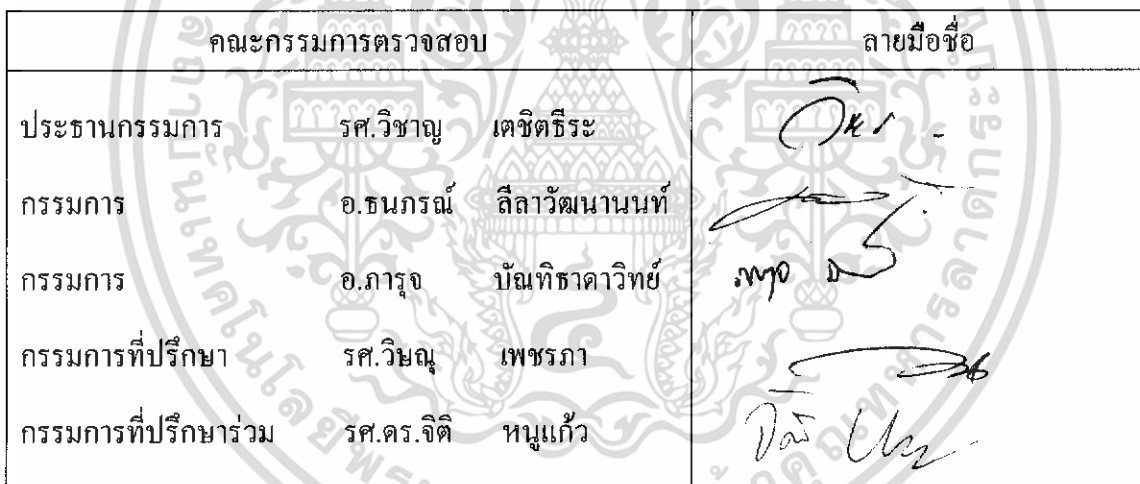 คณะกรรมการตรวจสอบ ลายมือชื่อ
ประธานกรรมการ รศ.วิชาญ เตชิตธีระ
กรรมการ อ.ธนภรณ์ ลีลาวัฒนานนท์
กรรมการ อ.ภารุจ บัณฑิธาดาวิทย์
กรรมการที่ปรึกษา รศ.วิษณุ เพชรภา
กรรมการที่ปรึกษาร่วม รศ.ดร.จิติ หนูแก้ว